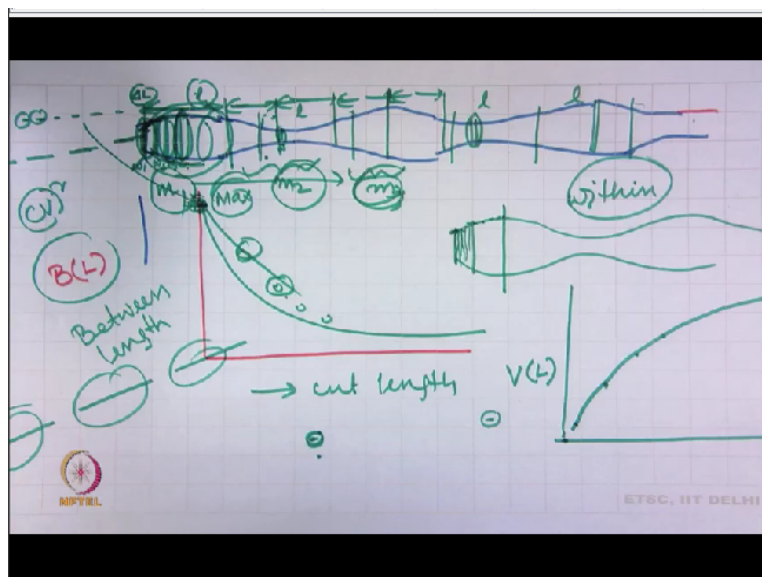 l
l
l
l
m1
Max
m2
within
CV
B(L)
Between
length
→ cut length
V(L)
NPTEL
ETSC, IIT DELHI